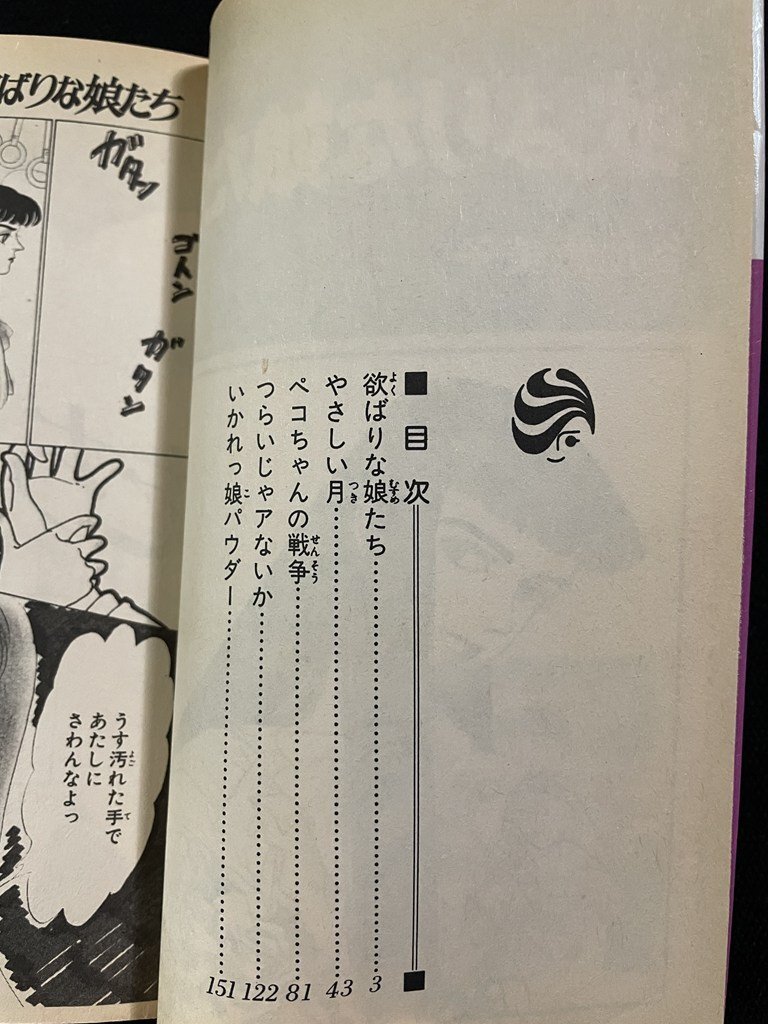 ■目次
欲ばりな娘たち……3
やさしい月……43
ペコちゃんの戦争……81
つらいじゃアないか……122
いかれっ娘パウダー……151
ばりな娘たち
ガタン
ゴトン
ガタン
うす汚れた手で
あたしに
さわんなよっ